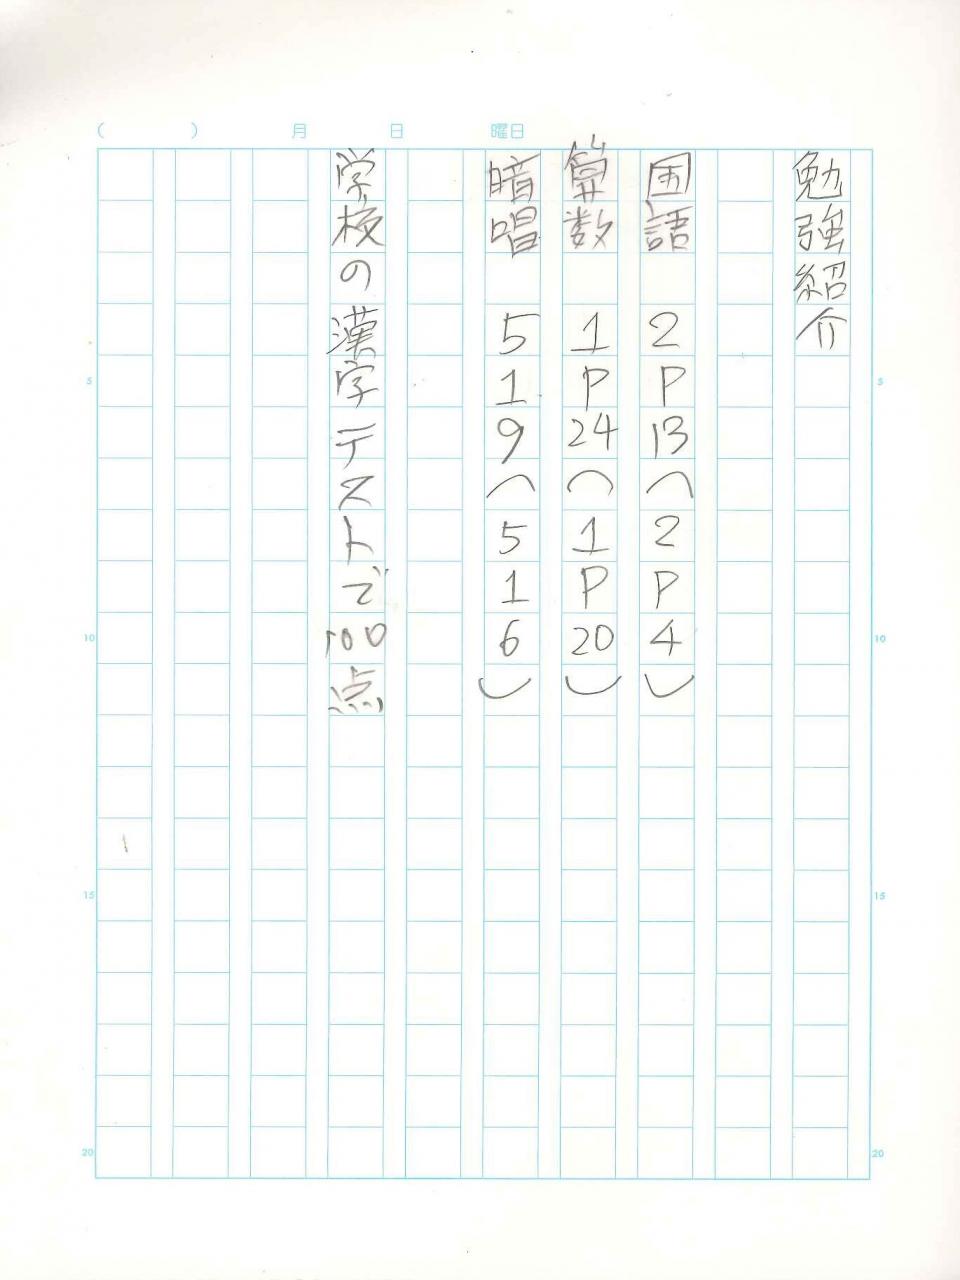 ( ) 月 日 曜日
勉強紹介
国語 2P13(2P4)
算数 1P24(1P20)
暗唱 519(516)
学校の漢字テストで100点
5
10
15
20
5
10
15
20